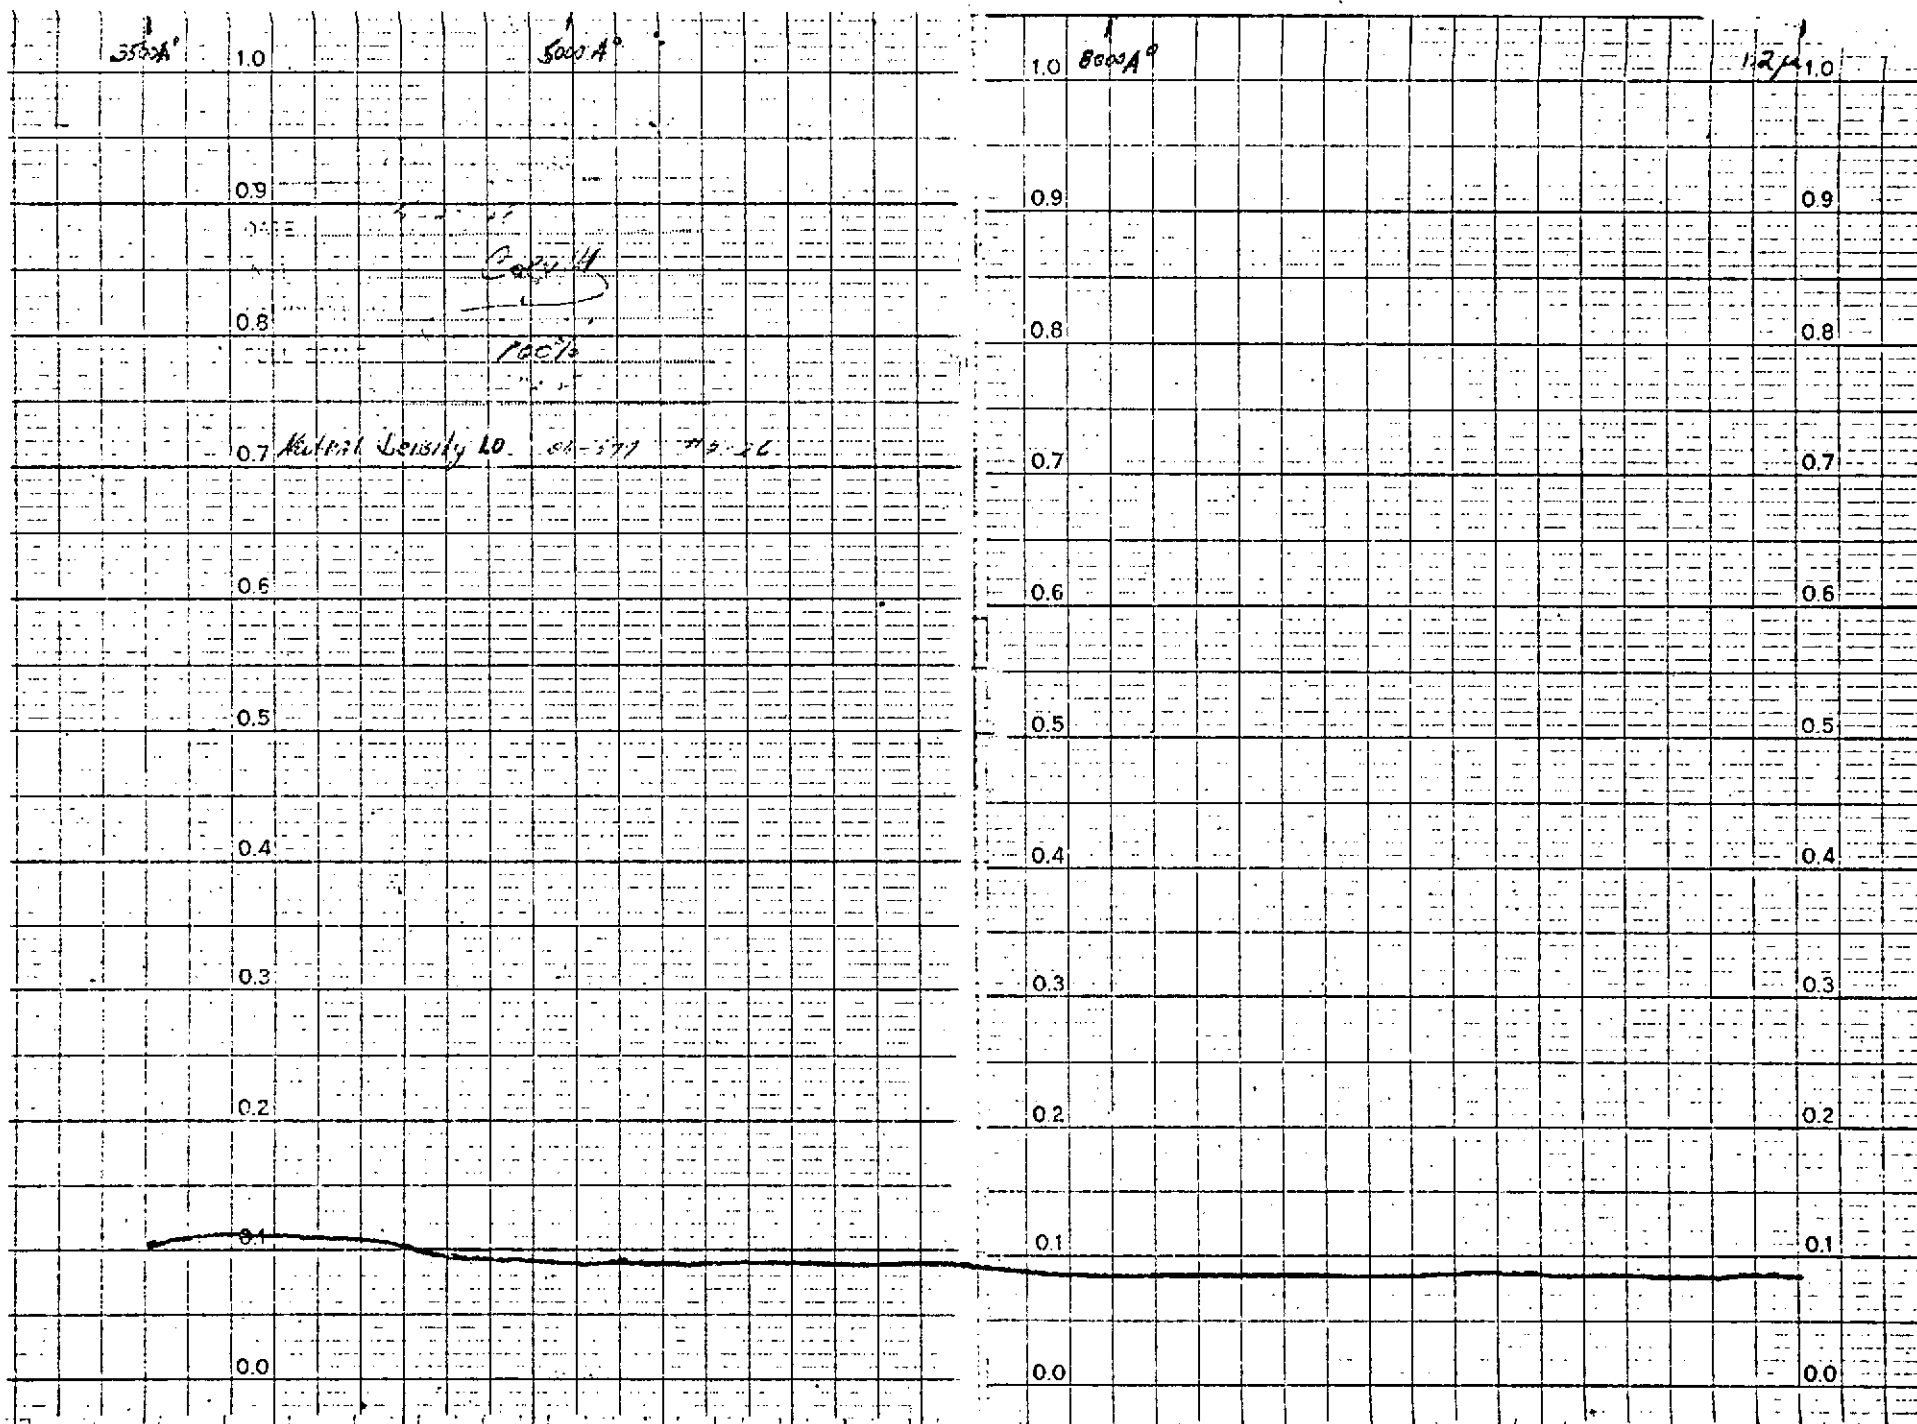 3500A°
5000A°
8000A°
1.2μ
1.0
1.0
1.0
0.9
0.9
0.9
DATE
Cary 14
0.8
0.8
0.8
100%
0.7 Neutral Density 1.0
0.7
0.7
0.6
0.6
0.6
0.5
0.5
0.5
0.4
0.4
0.4
0.3
0.3
0.3
0.2
0.2
0.2
0.1
0.1
0.1
0.0
0.0
0.0